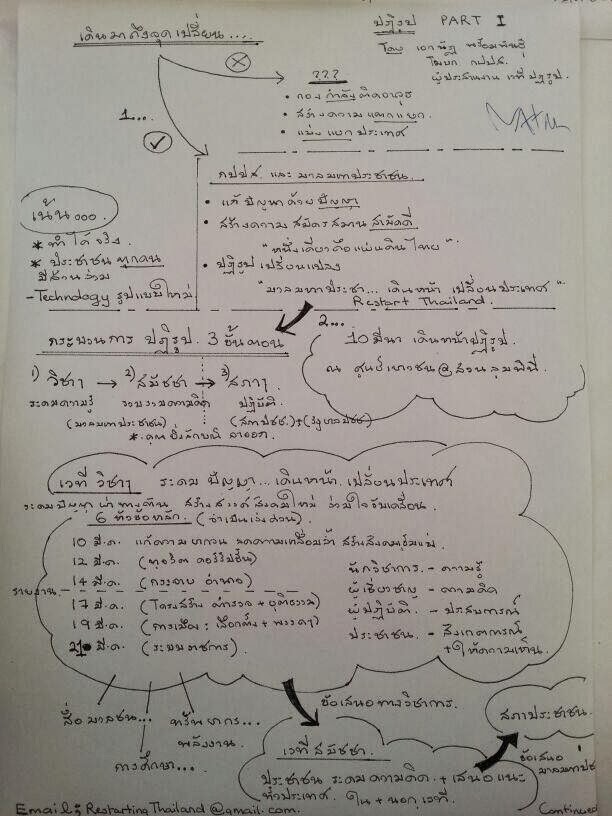 เดินมาถึงจุดเปลี่ยน....
ปฏิรูป PART I
โดย เอกนัฏ พร้อมพันธุ์
โฆษก กปปส.
ผู้ประสานงาน เวทีปฏิรูป.
???
• กองกำลังติดอาวุธ
• สร้างความแตกแยก.
• แบ่งแยกประเทศ
1...
กปปส. และ มวลมหาประชาชน.
• แก้ปัญหาด้วยปัญญา
• สร้างความสมัครสมานสามัคคี
"หนึ่งเดียวคือแผ่นดินไทย"
• ปฏิรูปเปลี่ยนแปลง
"มวลมหาประชา... เดินหน้า เปลี่ยนประเทศ"
Restart Thailand.
เน้น...
* ทำได้จริง
* ประชาชนทุกคน
มีส่วนร่วม
- Technology รูปแบบใหม่
กระบวนการ ปฏิรูป. 3 ขั้นตอน
1) วิชาๆ → 2) สมัชชา → 3) สภาๆ
ระดมความรู้ รวบรวมความคิด ปฏิบัติ.
(มวลมหาประชาชน) (สภาปชช.)+(รัฐบาลปชช)
*คุณยิ่งลักษณ์ ลาออก.
2...
10 มีนา เดินหน้าปฏิรูป.
ณ ศูนย์เยาวชน@สวนลุมพินี.
เวที วิชาๆ ระดมปัญญา...เดินหน้า.เปลี่ยนประเทศ
ระดมปัญญา นำทางต้น สร้างสรรค์สังคมใหม่ ร่วมใจขับเคลื่อน.
6 หัวข้อหลัก. (จำเป็นเร่งด่วน)
10 มี.ค. แก้ความยากจน ลดความเหลื่อมล้ำ สร้างสังคม
12 มี.ค. (ทุจริต คอร์รัปชั่น)
14 มี.ค. (กระจาย อำนาจ)
รายงาน.
17 มี.ค. (โครงสร้าง ตำรวจ + ยุติธรรม)
19 มี.ค. (การเมือง : เลือกตั้ง + พรรคๆ)
21 มี.ค. (ระบบราชการ)
นักวิชาการ. - ความรู้
ผู้เชี่ยวชาญ - ความคิด
ผู้ปฏิบัติ. - ประสบการณ์
ประชาชน. - สังเกตการณ์
+ให้ความเห็น.
สื่อมวลชน...
การศึกษา...
ทรัพยากร...
พลังงาน.
ข้อเสนอทางวิชาการ.
เวทีสมัชชา.
ประชาชน ระดมความคิด + เสนอแนะ
ทั่วประเทศ. ใน + นอก เวที.
สภาประชาชน.
ข้อเสนอ
มวลมหาปช
Email: RestartingThailand@gmail.com.
Continued